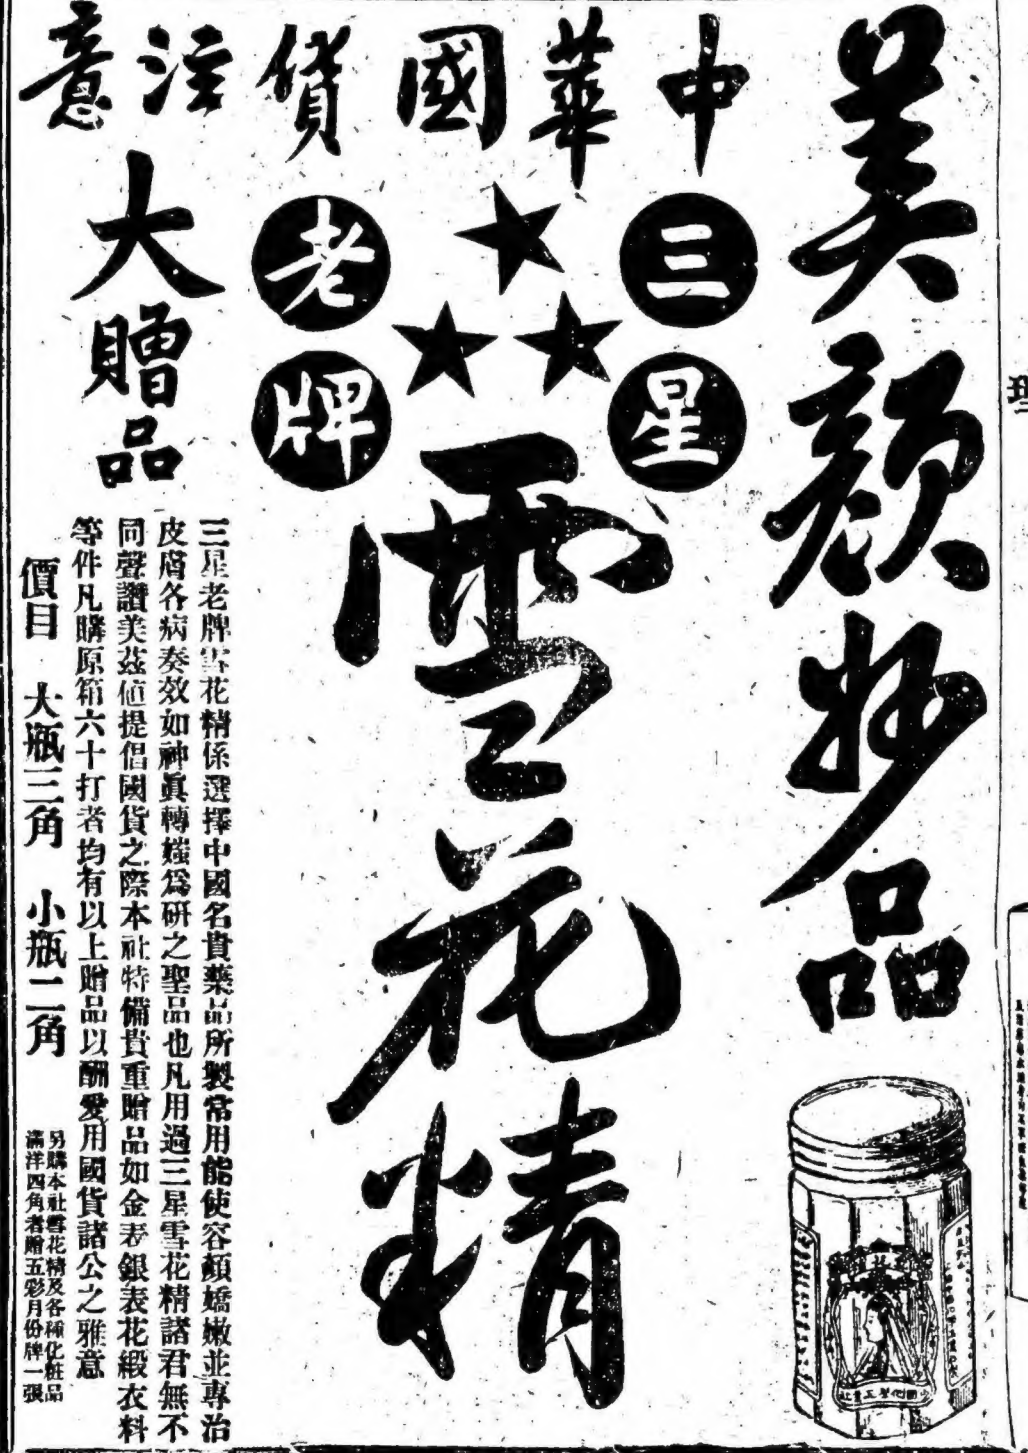 美顏妙品
中華國貨注意
三星
老牌
雪花精
大贈品
三星老牌雪花精係選擇中國名貴藥品所製常用能使容顏嬌嫩並專治
皮膚各病奏效如神眞轉媸爲研之聖品也凡用過三星雪花精諸君無不
同聲讚美茲値提倡國貨之際本社特備貴重贈品如金表銀表花緞衣料
等件凡購原箱六十打者均有以上贈品以酬愛用國貨諸公之雅意
價目 大瓶三角 小瓶二角
另購本社雪花精及各種化粧品
滿洋四角者贈五彩月份牌一張